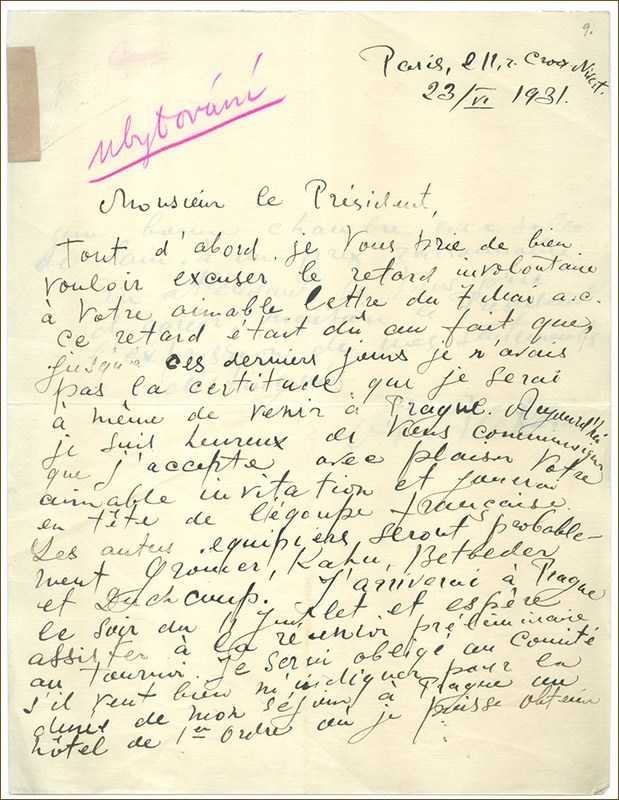 9.
Paris, 211, r. Croix Nivert.
23/VI 1931.
ubytování
Monsieur le Président,
Tout d'abord je Vous prie de bien
vouloir excuser le retard involontaire
à Votre aimable lettre du 7 Mai a.c.
ce retard était dû au fait que,
jusqu'à ces derniers jours je n'avais
pas la certitude que je serai
à même de venir à Prague. Aujourd'hui
je suis heureux de Vous communiquer
que j'accepte avec plaisir Votre
aimable invitation et jouerai
en tête de l'équipe française.
Les autres équipiers seront probable-
ment Gromer, Kahn, Betbeder
et Duchamp. J'arriverai à Prague
le soir du 11 Juillet et espère
assister à la réunion préliminaire
au tournoi. Je serai obligé au Comité
s'il veut bien m'indiquer pour la
durée de mon séjour à Prague un
hôtel de 1er ordre où je puisse obtenir